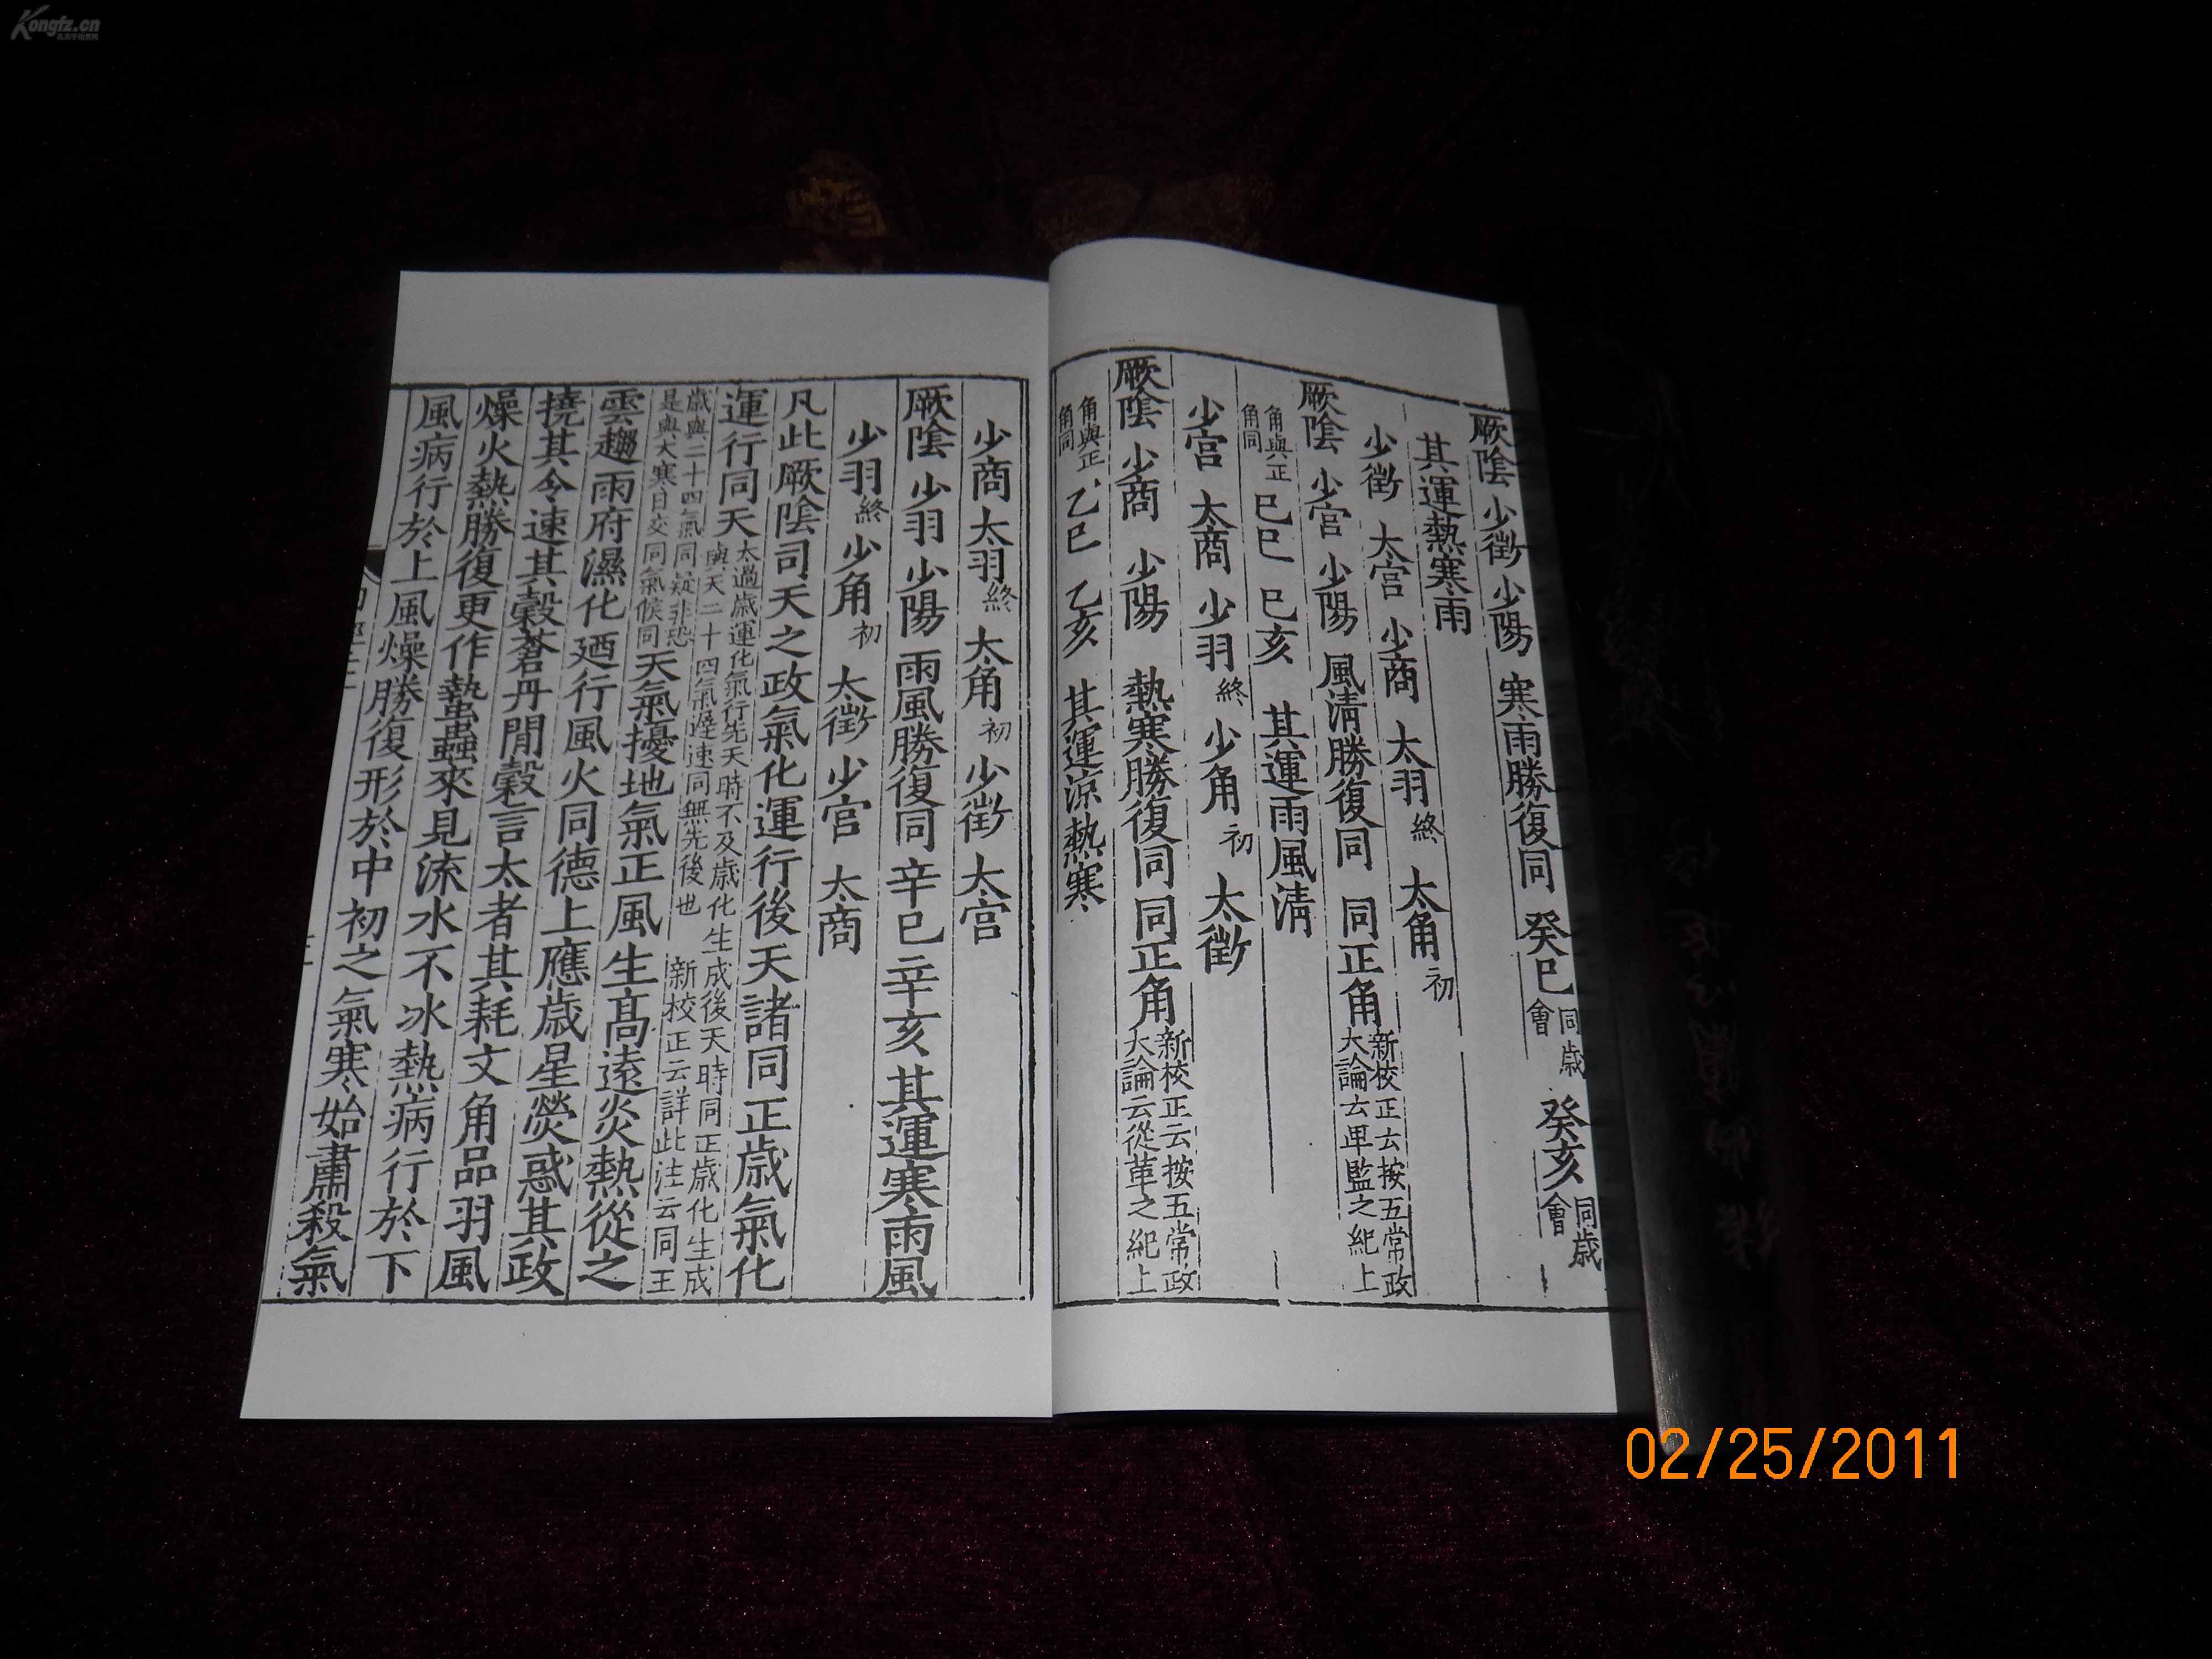 厥陰 少徵 少陽 寒雨勝復同 癸巳 同歲會 癸亥 同歲會
其運熱寒雨
少徵 太宮 少商 太羽 終 太角 初
厥陰 少宮 少陽 風清勝復同 同正角 新校正云按五常政
大論云卑監之紀上
角與正
角同 己巳 己亥 其運雨風清
少宮 太商 少羽 終 少角 初 太徵
厥陰 少商 少陽 熱寒勝復同 同正角 新校正云按五常政
大論云從革之紀上
角與正
角同 乙巳 乙亥 其運涼熱寒
少商 太羽 終 太角 初 少徵 太宮
厥陰 少羽 少陽 雨風勝復同 辛巳 辛亥 其運寒雨風
少羽 終 少角 初 太徵 少宮 太商
凡此厥陰司天之政氣化運行後天諸同正歲氣化
運行同天 太過歲運化氣行先天時不及歲化生成後天時同正歲化生成
與天二十四氣遲速同無先後也 新校正云詳此注云同王
歲與二十四氣同疑非恐
是與大寒日交同氣候同 天氣擾地氣正風生高遠炎熱從之
雲趨雨府濕化廼行風火同德上應歲星熒惑其政
撓其令速其穀蒼丹閒穀言太者其耗文角品羽風
燥火熱勝復更作蟄蟲來見流水不冰熱病行於下
風病行於上風燥勝復形於中 初之氣寒始肅殺氣
Kongfz.cn
02/25/2011